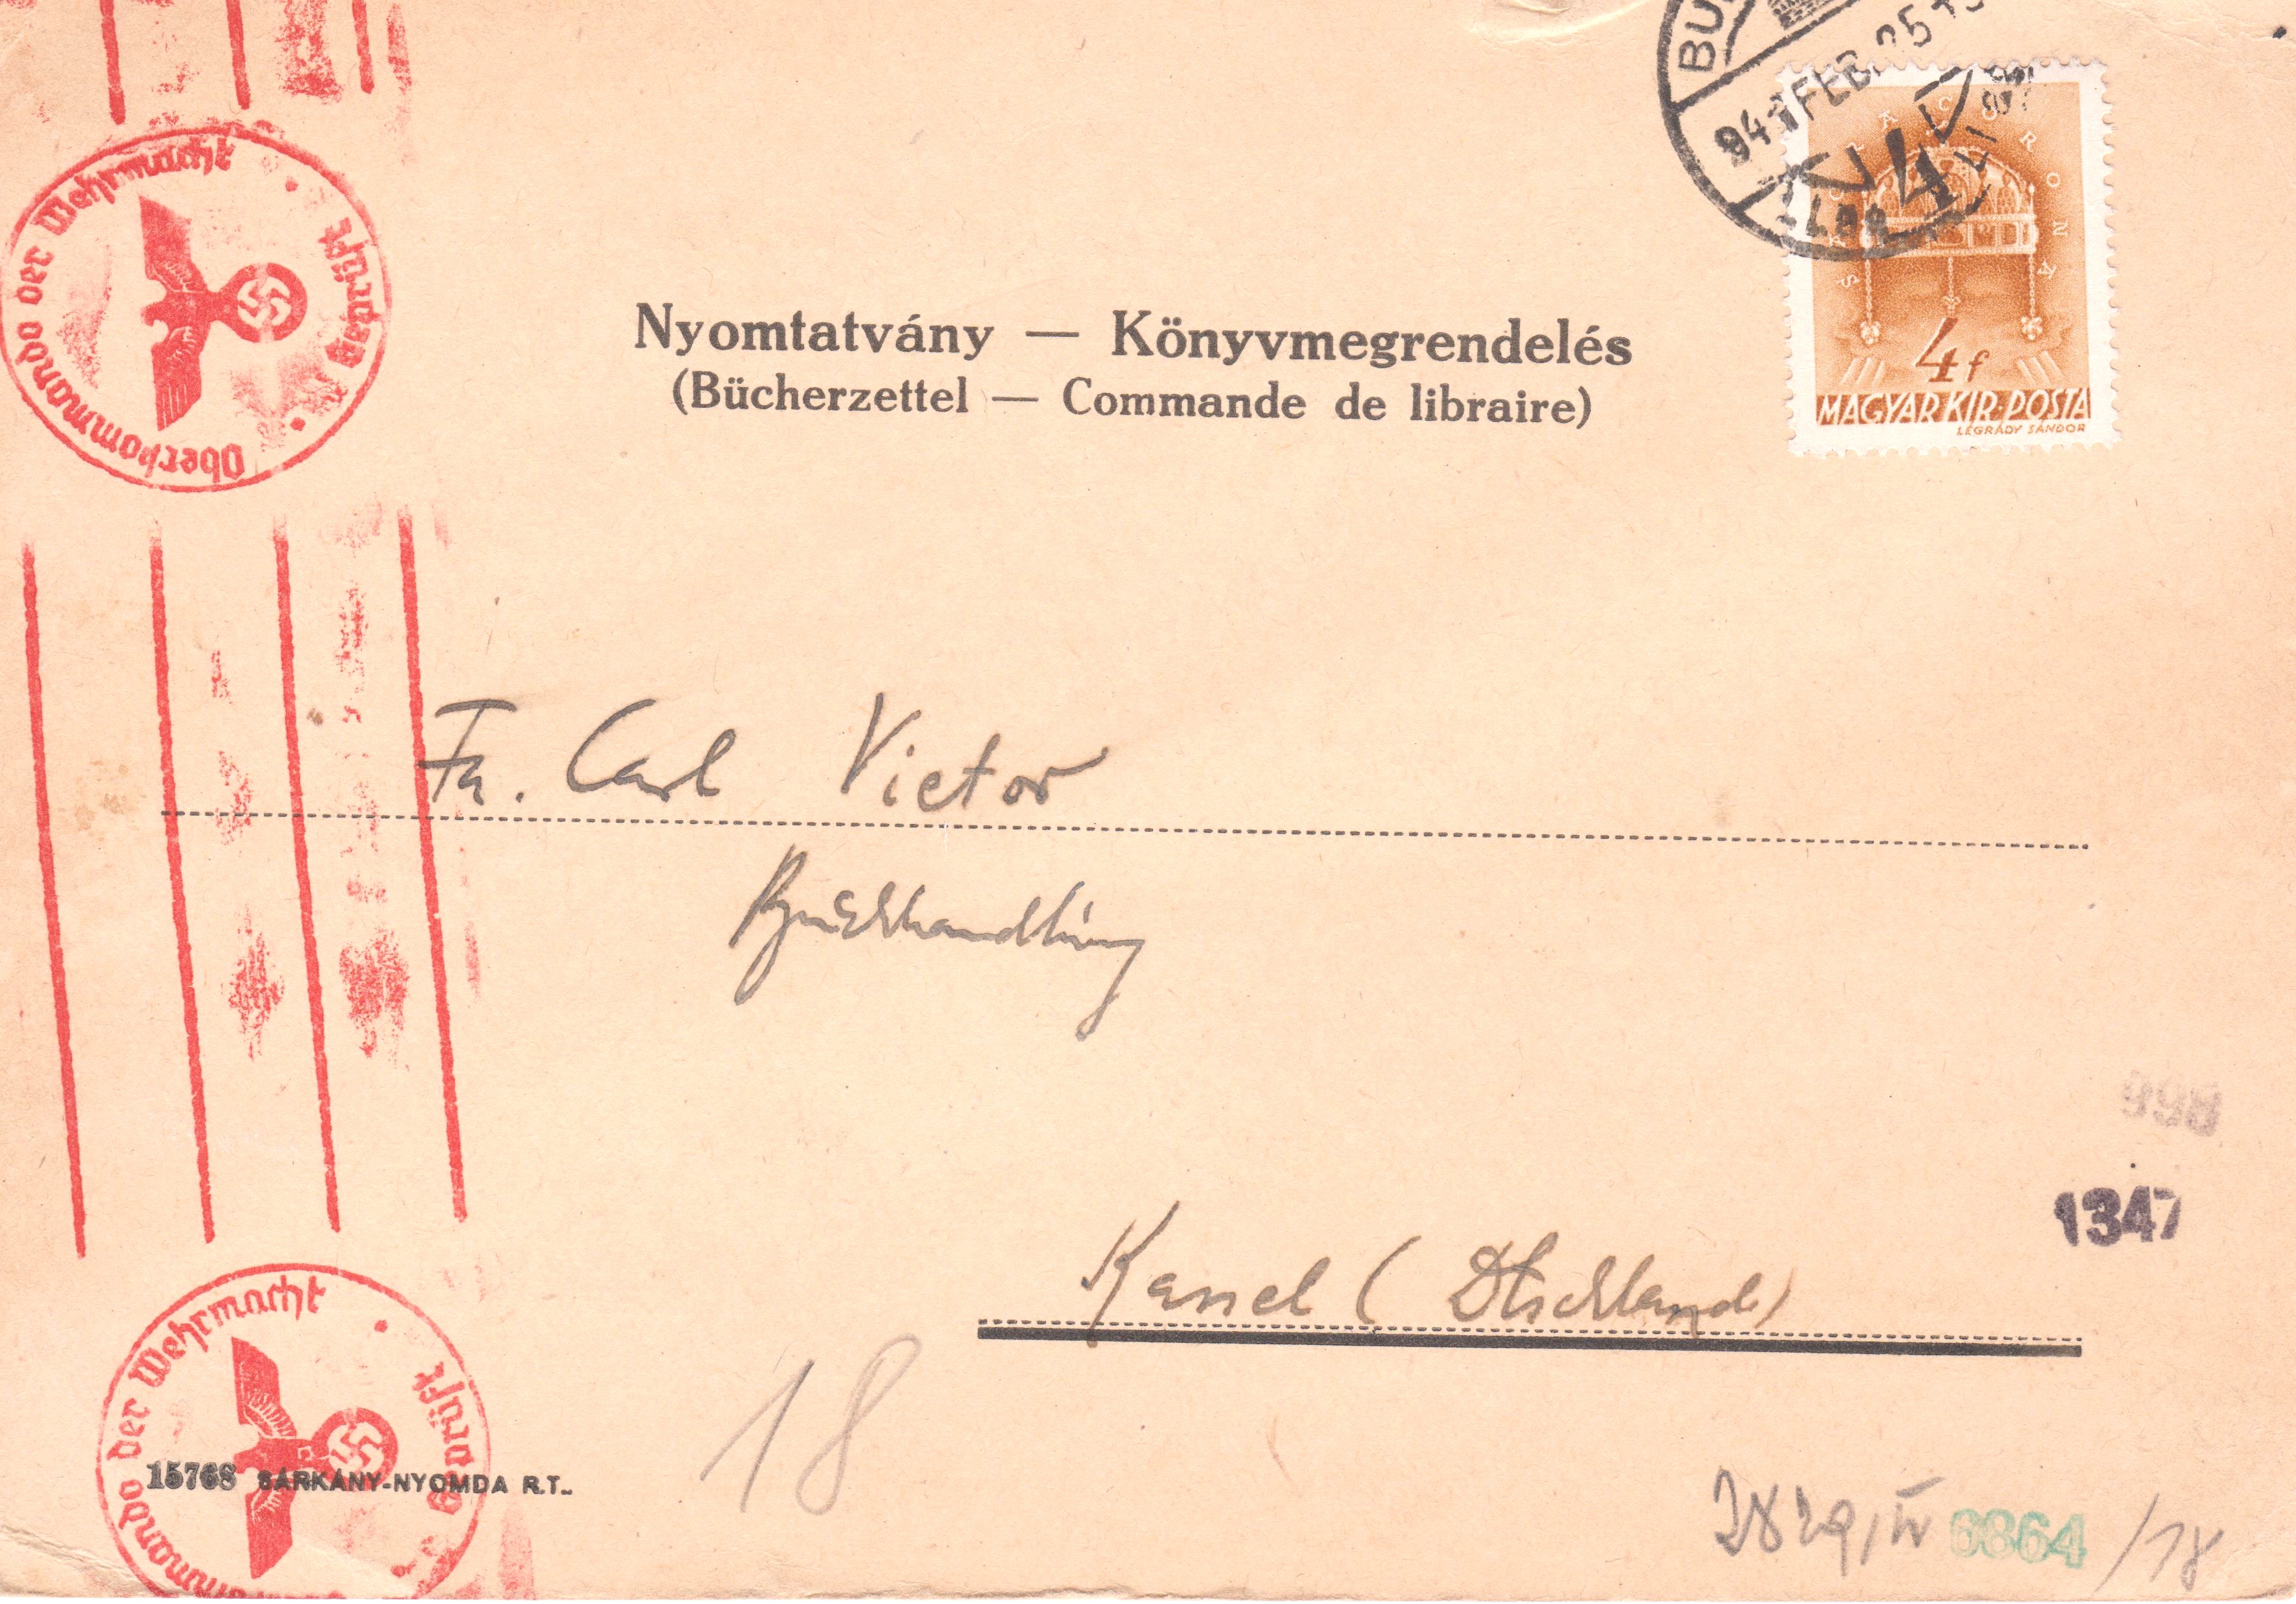 Oberkommando der Wehrmacht
Geprüft
BU
941 FEB. 25
4
SACRA CORONA
4 f
MAGYAR KIR. POSTA
LÉGRÁDY SÁNDOR
Nyomtatvány — Könyvmegrendelés
(Bücherzettel — Commande de libraire)
Fa. Carl Victor
Buchhandlung
998
1347
Kassel (Dtschland)
18
Oberkommando der Wehrmacht
Geprüft
15768 SÁRKÁNY-NYOMDA R.T.
6864
/18